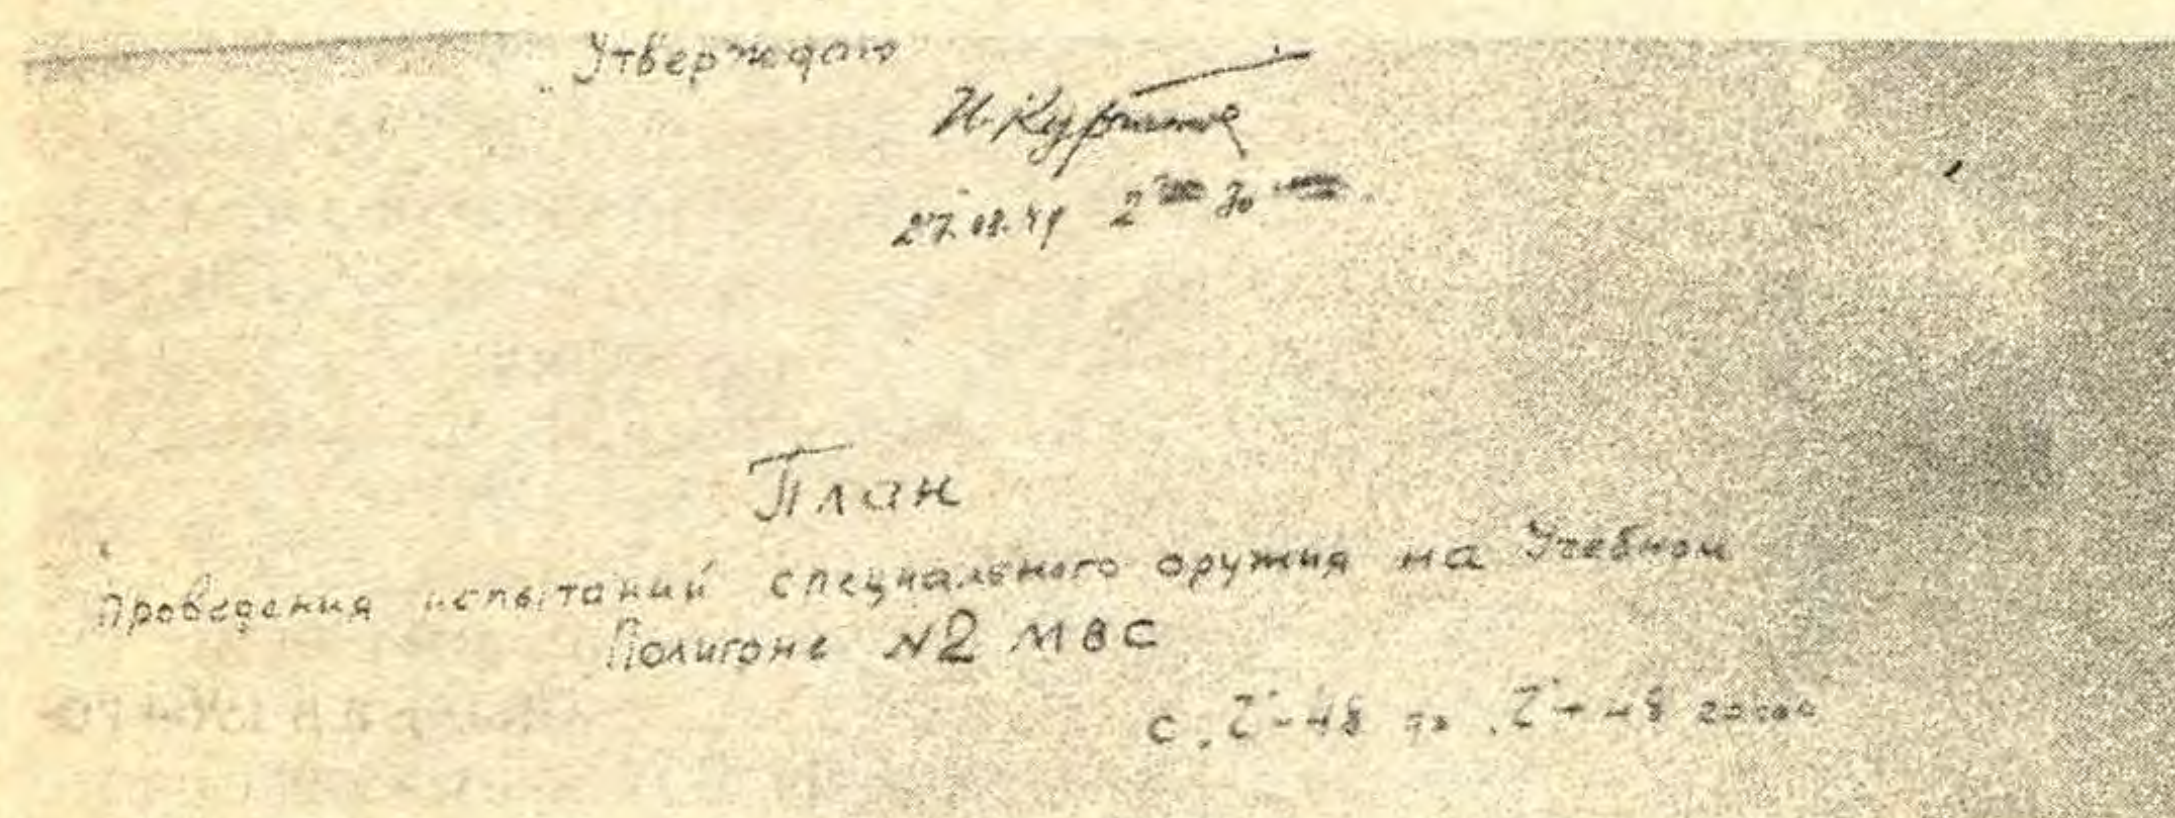 „Утверждаю
И. Курчатов
27.08.49 2 30
План
проведения испытаний специального оружия на Учебном
Полигоне №2 МВС
с „Z"-48 до „Z"+48 часов